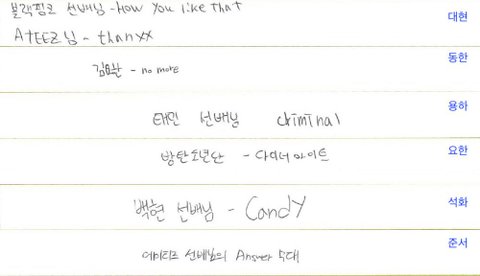 블랙핑크 선배님 - How You like that
대현
ATEEZ님 - thanxx
동한
김요한 - no more
용하
태민 선배님 criminal
요한
방탄소년단 - 다이너마이트
석화
백현 선배님 - Candy
준서
에이티즈 선배님의 Answer 무대